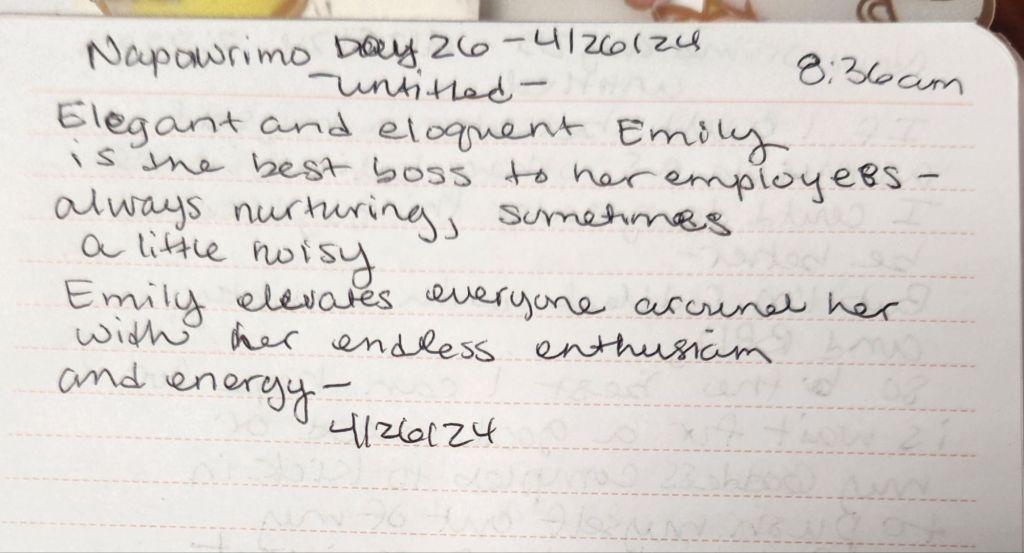 Napowrimo Day 26 - 4/26/24
8:36am
-untitled-
Elegant and eloquent Emily
is the best boss to her employees -
always nurturing, sometimes
a little noisy
Emily elevates everyone around her
with her endless enthusiam
and energy -
4/26/24